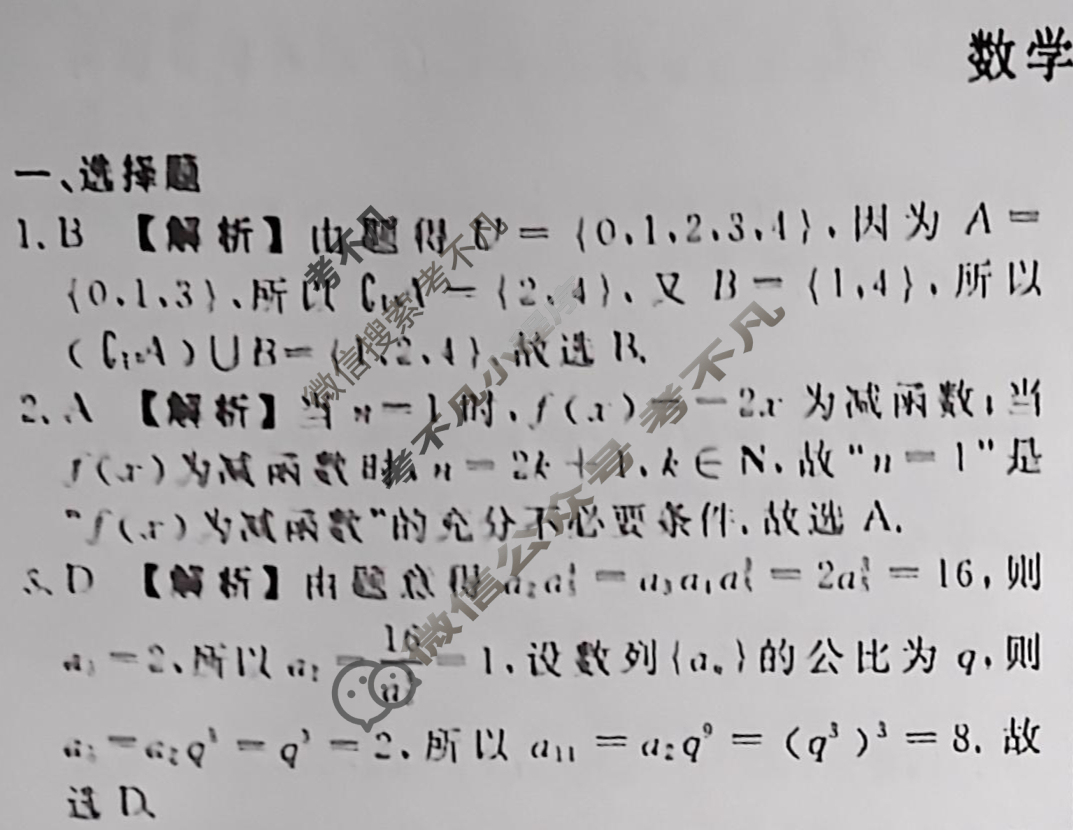 数学
一、选择题
1.B 【解析】由题得 U={0,1,2,3,4},因为 A=
{0,1,3},所以 ∁UA={2,4},又 B={1,4},所以
(∁UA)∪B={1,2,4},故选 B.
2.A 【解析】当 n=1 时,f(x)=-2x 为减函数;当
f(x)为减函数时, n=2k+1,k∈N,故“n=1”是
“f(x)为减函数”的充分不必要条件,故选 A.
3.D 【解析】由题意得 = = 2 = 16,则
=2,所以 a₂ = 16 = 1,设数列{aₙ}的公比为 q,则
=a₂q³=q³=2,所以 a₁₁=a₂q⁹=(q³)³=8.故
选 D.
考不凡
微信搜索考不凡
考不凡小程序
微信公众号考不凡